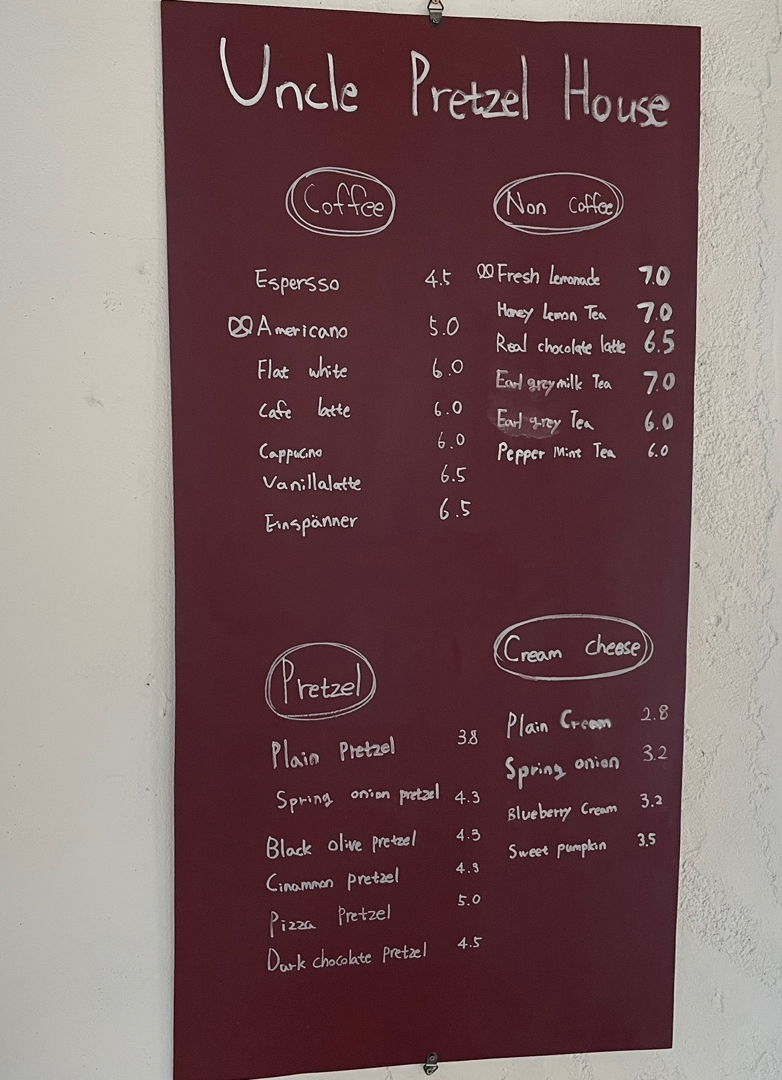 Uncle Pretzel House
Coffee
Espersso 4.5
Americano 5.0
Flat white 6.0
Cafe latte 6.0
Cappucino 6.0
Vanillalatte 6.5
Einspänner 6.5
Non Coffee
Fresh Lemonade 7.0
Honey Lemon Tea 7.0
Real chocolate latte 6.5
Earl grey milk Tea 7.0
Earl grey Tea 6.0
Pepper Mint Tea 6.0
Pretzel
Plain Pretzel 3.8
Spring onion pretzel 4.3
Black olive pretzel 4.3
Cinammon pretzel 4.3
Pizza Pretzel 5.0
Dark chocolate pretzel 4.5
Cream cheese
Plain Cream 2.8
Spring onion 3.2
Blueberry Cream 3.2
Sweet pumpkin 3.5